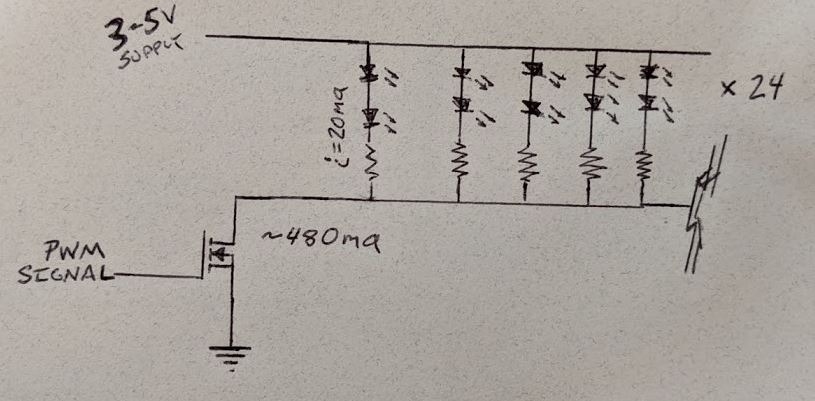 3-5V
SUPPLY
× 24
i=20ma
~480ma
PWM
SIGNAL